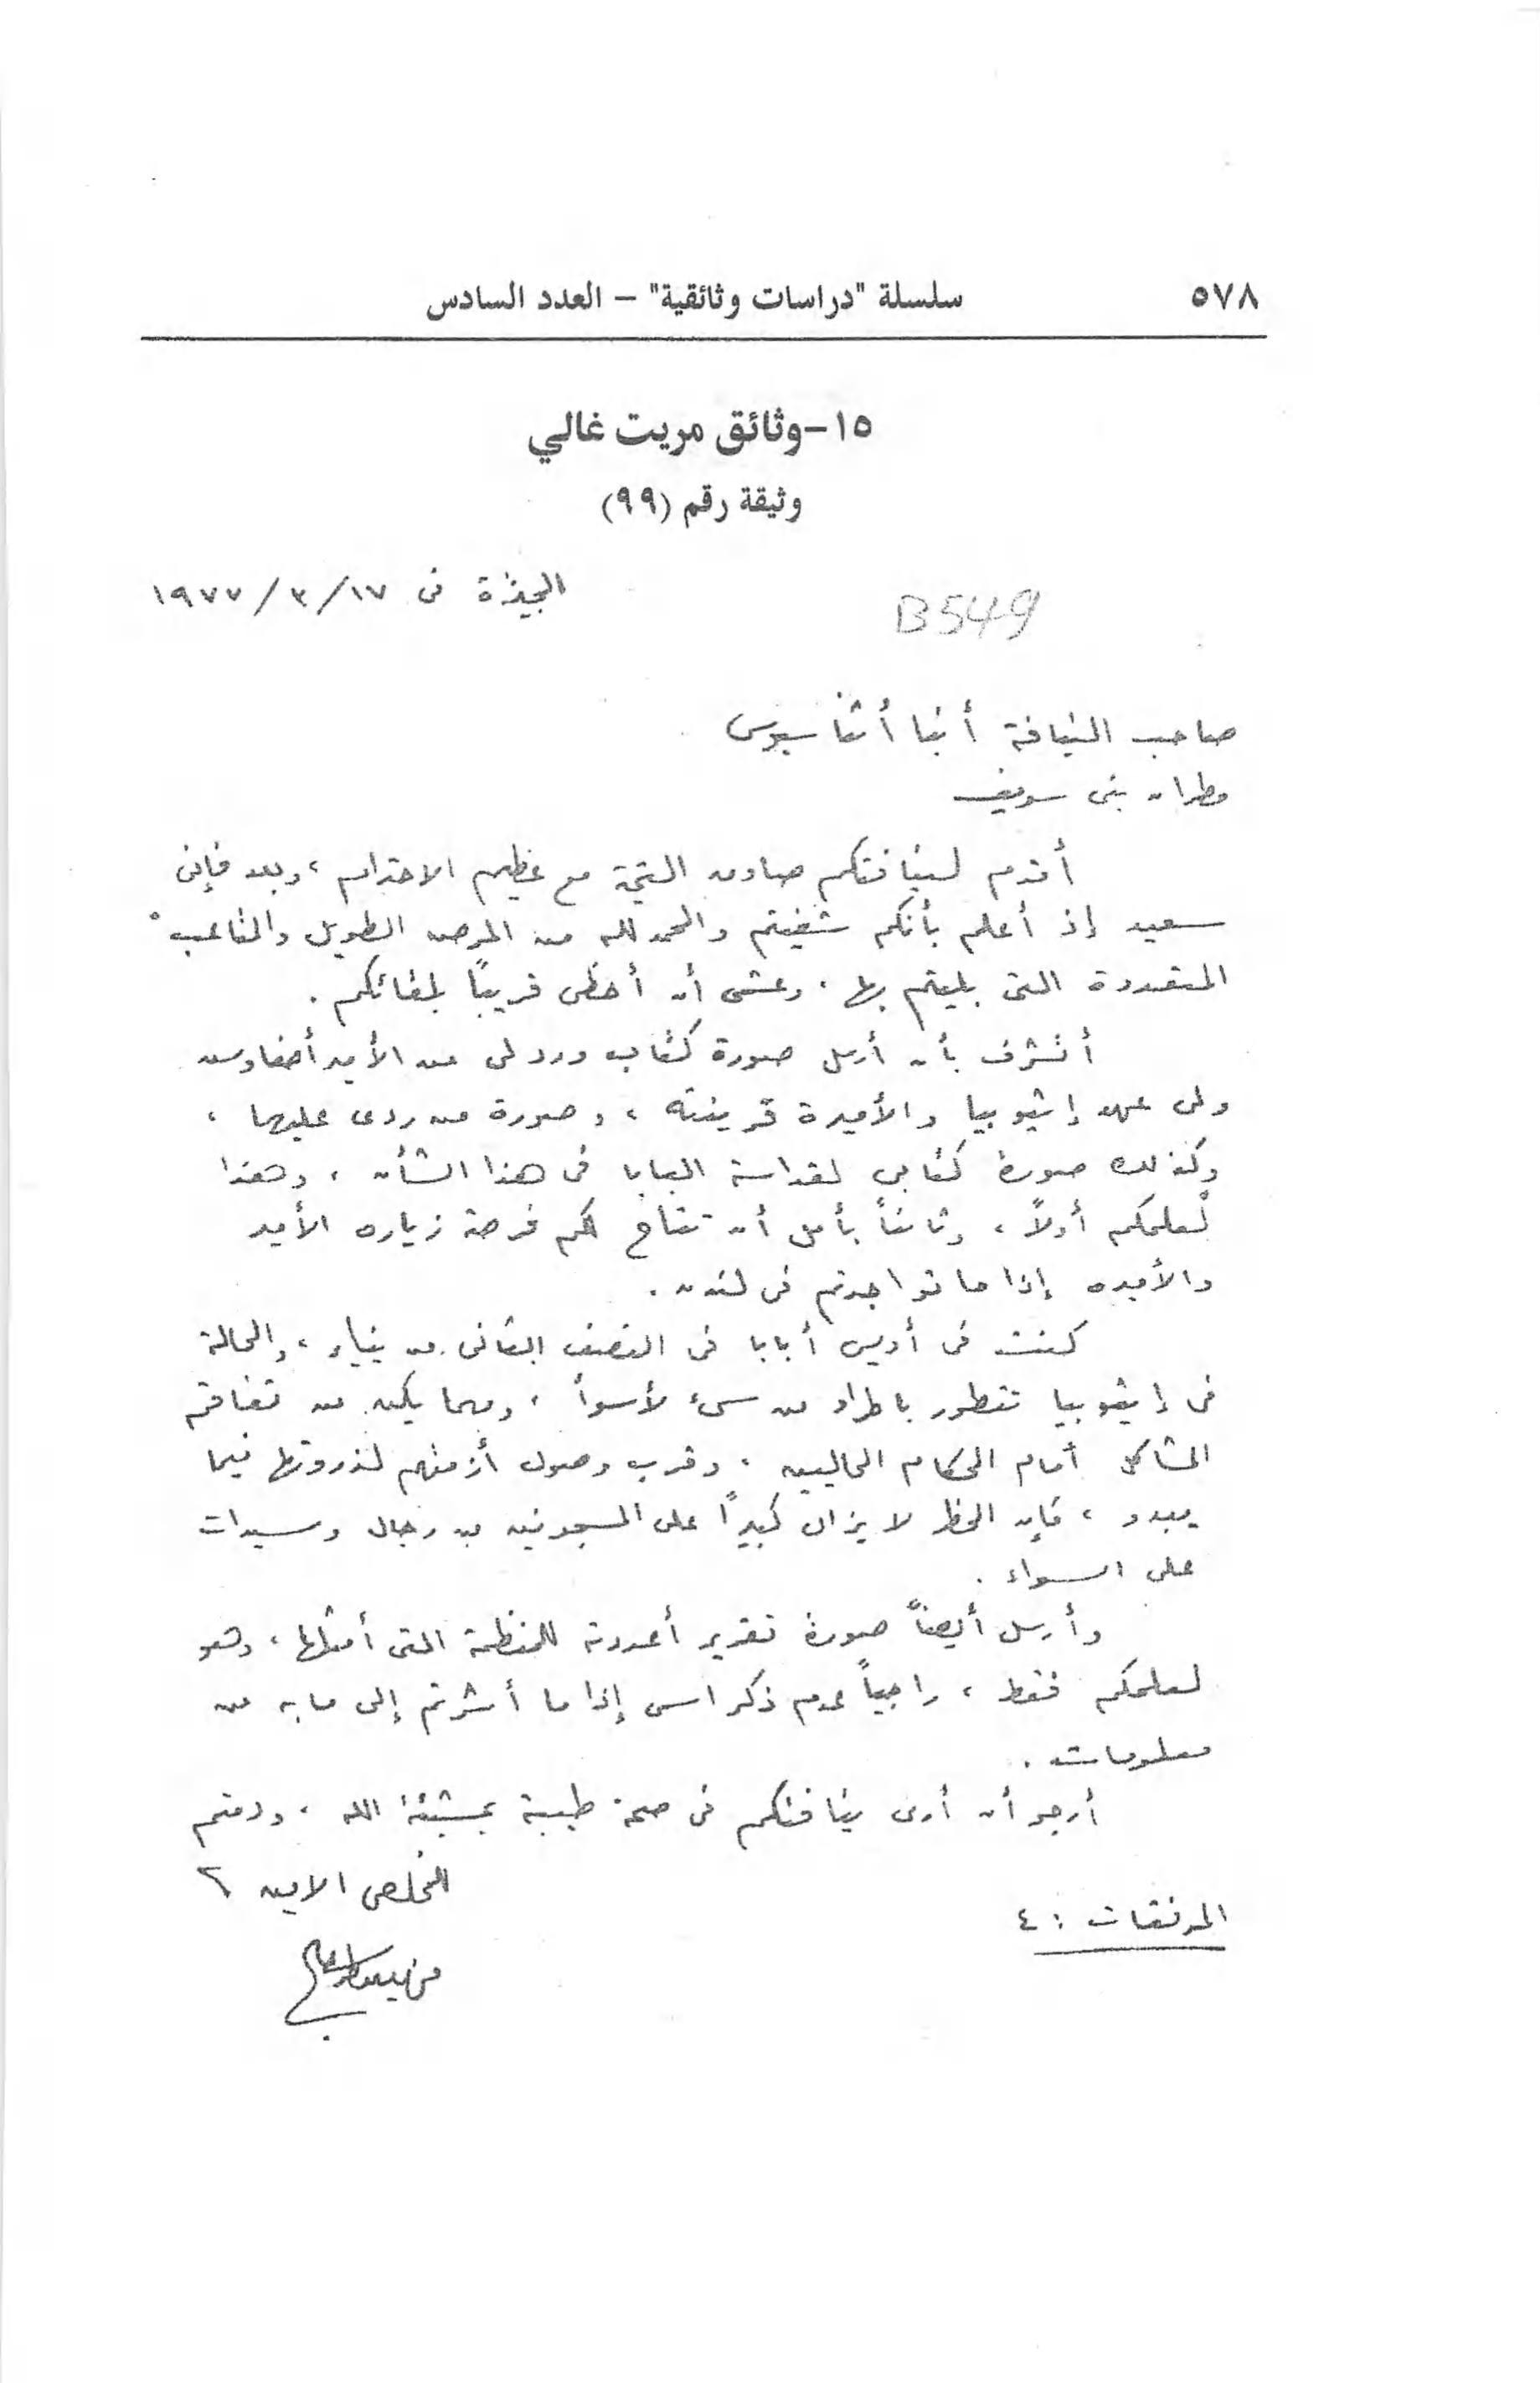 ٥٧٨ سلسلة "دراسات وثائقية" – العدد السادس
١٥-وثائق مريت غالي
وثيقة رقم (٩٩)
الجيزة فى ١٩٧٧/٣/١٧
B549
صاحب النيافة أنبا أثناسيوس
مطران بنى سويف
أقدم لنيافتكم صادق التحية مع عظيم الاحترام ، وبعد فإنى
سعيد إذ أعلم بأنكم شفيتم والحمد لله من المرض الطويل والمتاعب
المتعددة التى بليتم بها . وعشمى أن أحظى قريباً بلقائكم .
أتشرف بأن أرسل صورة كتاب ورد لى من الأمير أصفاوسن
ولى عهد إثيوبيا والأميرة قرينته ، وصورة من ردى عليهما ،
وكذلك صورة كتابى لقداسة البابا فى هذا الشأن ، وهذا
لعلمكم أولاً ، وثانياً بأمل أن تتاح لكم فرصة زياره الأمير
والأميره إذا ما تواجدتم فى لندن .
كنت فى أديس أبابا فى النصف الثانى من يناير ، والحالة
فى إثيوبيا تتطور باطراد من سىء لأسوأ ، ومهما يكن من تفاقم
المشاكل أمام الحكام الحاليين ، وقرب وصول أزمتهم لذروتها فيما
يبدو ، فإن الخطر لا يزال كبيراً على المسجونين من رجال وسيدات
على السواء .
وأرسل أيضاً صورة تقرير أعددته للمنظمة التى أمثلها ، وهو
لعلمكم فقط ، راجياً عدم ذكر اسمى إذا ما أشرتم إلى ما به من
معلومات .
أرجو أن أرى نيافتكم فى صحة طيبة بمشيئة الله ، ودمتم
المخلص الأمين
المرفقات : ٤